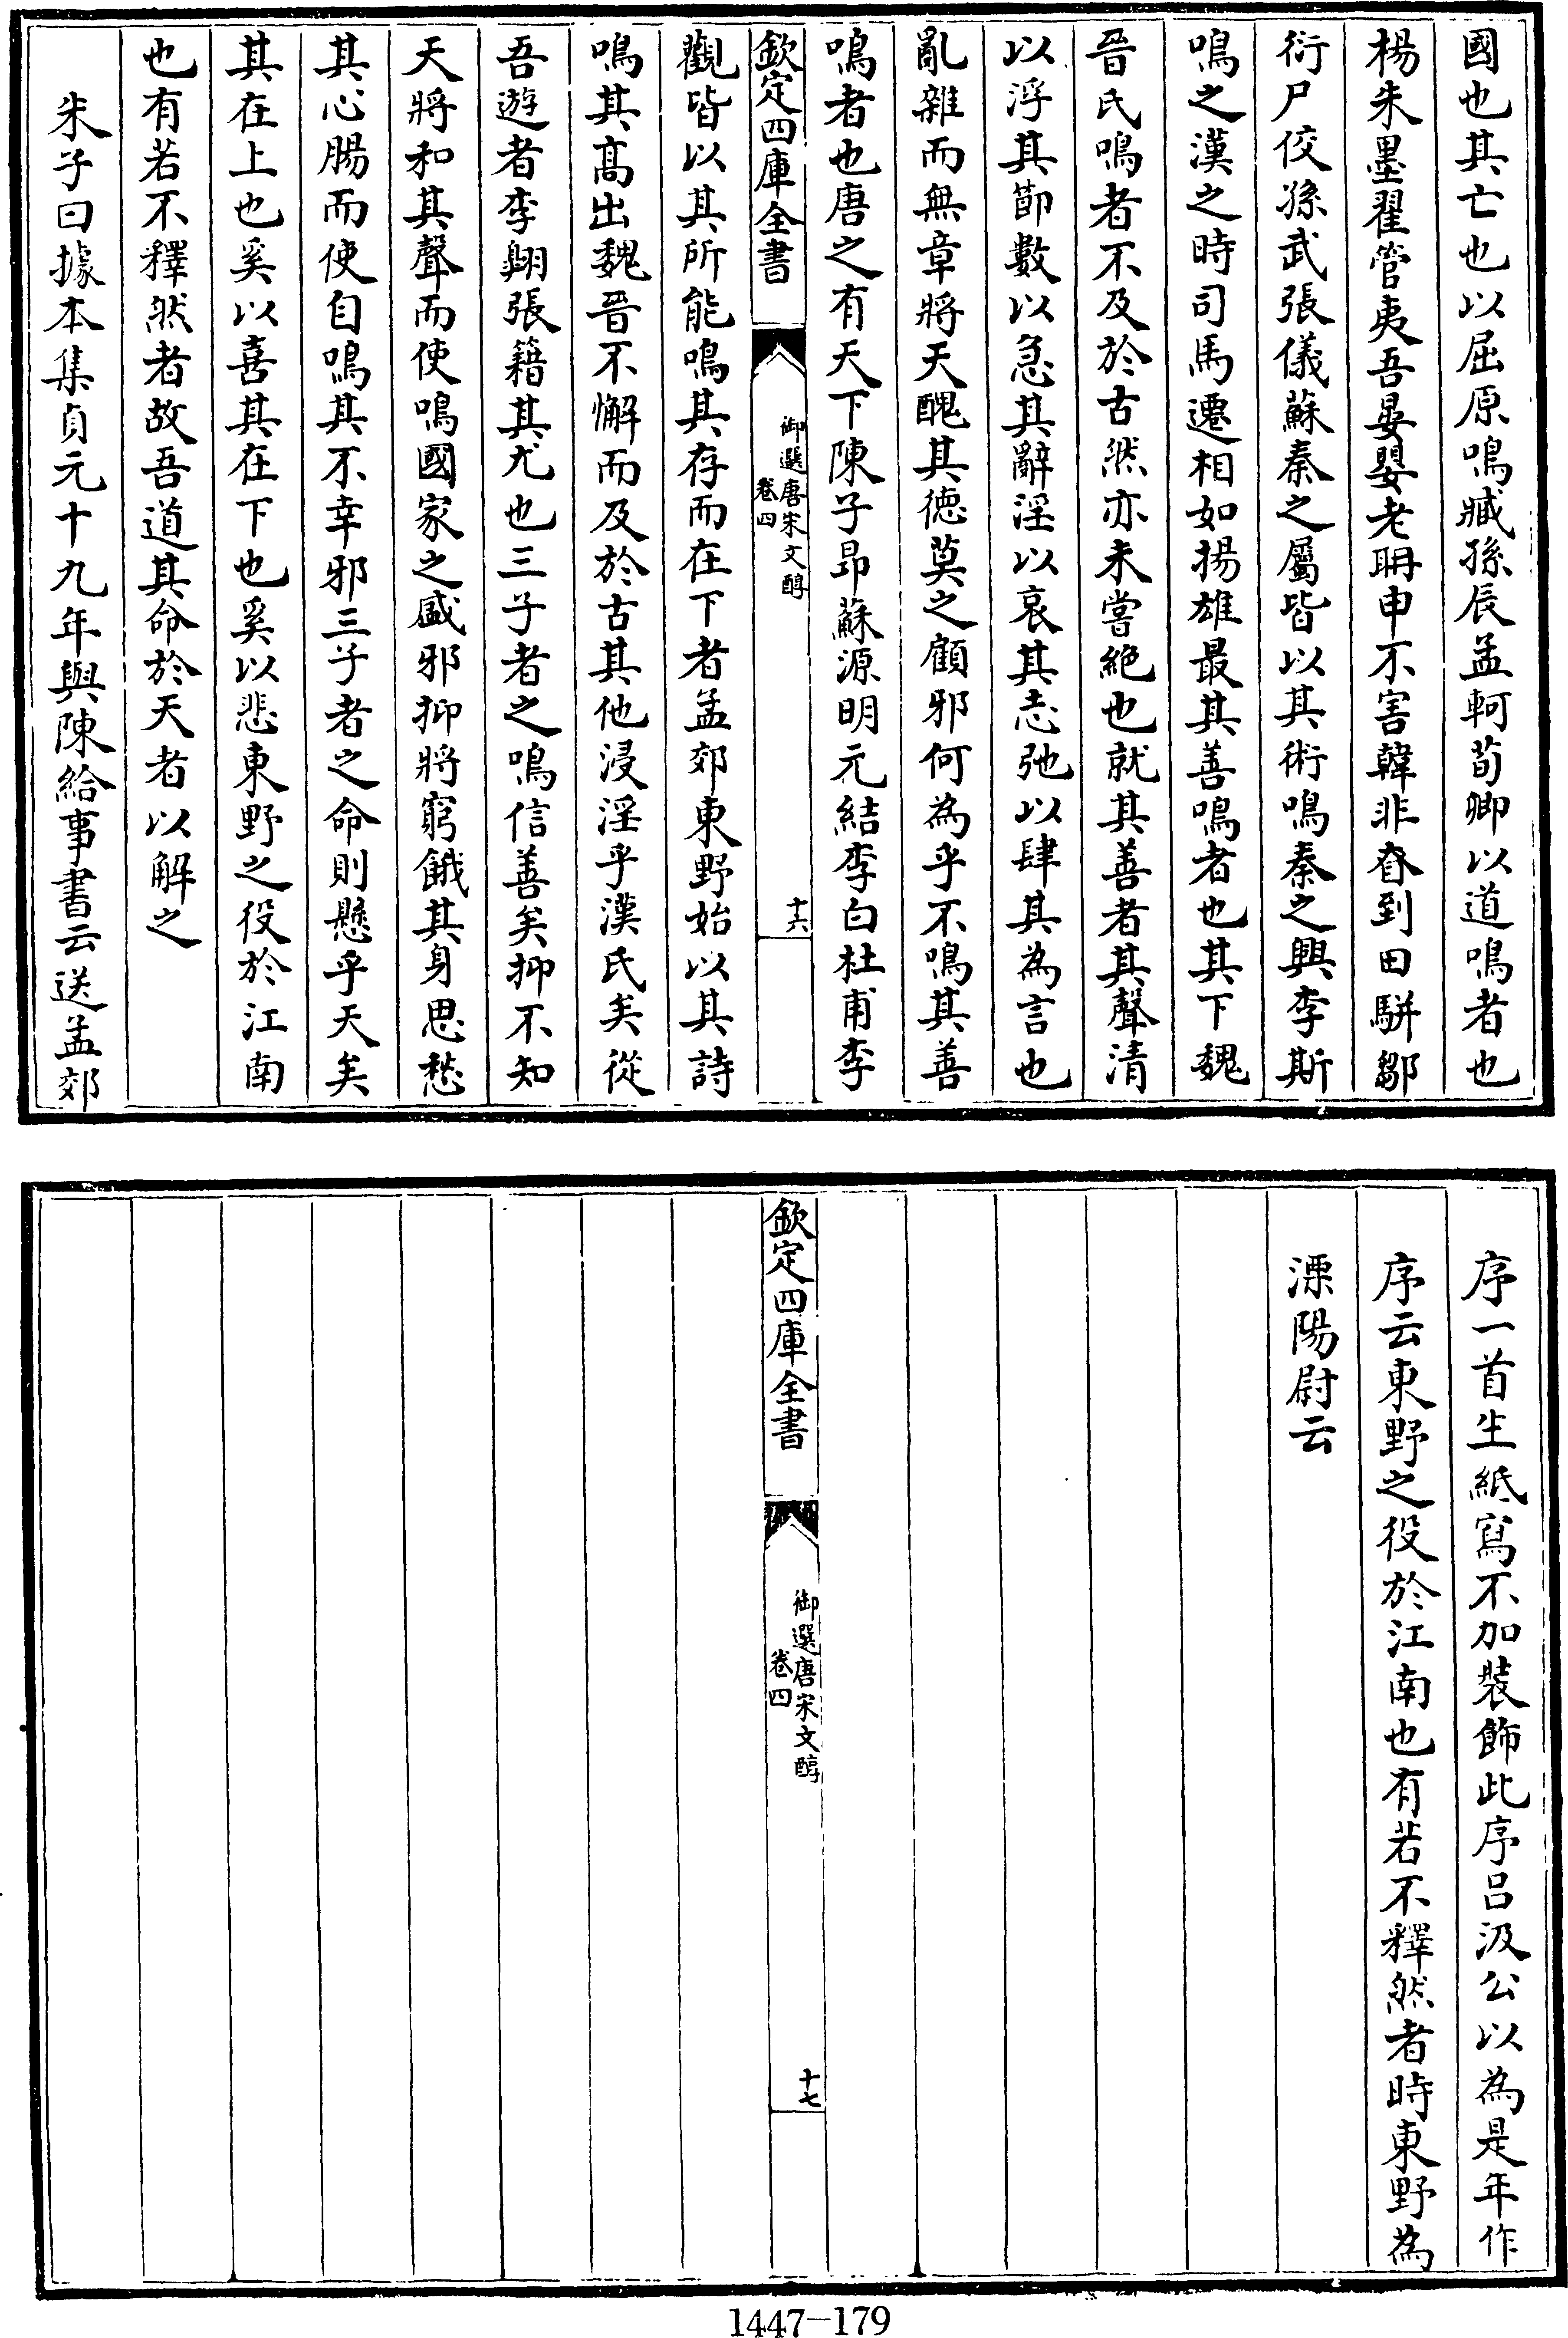 國也其亡也以屈原鳴臧孫辰孟軻荀卿以道鳴者也
楊朱墨翟管夷吾晏嬰老耼申不害韓非昚到田駢鄒
衍尸佼孫武張儀蘇秦之屬皆以其術鳴秦之興李斯
鳴之漢之時司馬遷相如揚雄最其善鳴者也其下魏
晉氏鳴者不及於古然亦未嘗絶也就其善者其聲清
以浮其節數以急其辭淫以哀其志弛以肆其為言也
亂雜而無章將天醜其德莫之顧邪何為乎不鳴其善
鳴者也唐之有天下陳子昂蘇源明元結李白杜甫李
欽定四庫全書
御選唐宋文醇
卷四
十六
觀皆以其所能鳴其存而在下者孟郊東野始以其詩
鳴其髙出魏晉不懈而及於古其他浸淫乎漢氏矣從
吾遊者李翺張籍其尤也三子者之鳴信善矣抑不知
天將和其聲而使鳴國家之盛邪抑將窮餓其身思愁
其心腸而使自鳴其不幸邪三子者之命則懸乎天矣
其在上也奚以喜其在下也奚以悲東野之役於江南
也有若不釋然者故吾道其命於天者以解之
朱子曰據本集貞元十九年與陳給事書云送孟郊
序一首生紙寫不加裝飾此序吕汲公以為是年作
序云東野之役於江南也有若不釋然者時東野為
溧陽尉云
欽定四庫全書
御選唐宋文醇
卷四
十七
1447-179